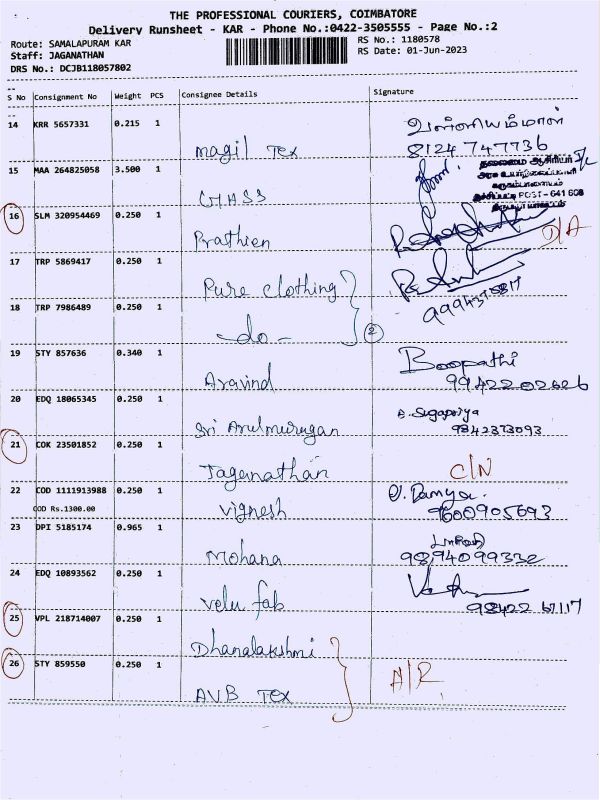 THE PROFESSIONAL COURIERS, COIMBATORE
Delivery Runsheet - KAR - Phone No.:0422-3505555 - Page No.:2
Route: SAMALAPURAM KAR RS No.: 1180578
Staff: JAGANATHAN RS Date: 01-Jun-2023
DRS No.: DCJB118057802
S No Consignment No Weight PCS Consignee Details Signature
14 KRR 5657331 0.215 1 வள்ளியம்மாள்
Magil Tex 8124 747736
15 MAA 264825058 3.500 1 தலைமை ஆசிரியர்
அரசு உயர்நிலைப்பள்ளி
G.H.S.S POST - 641 608
16 SLM 320954469 0.250 1
Prathien D/A
17 TRP 5869417 0.250 1
Pure clothing
18 TRP 7986489 0.250 1
-do- 2
19 STY 857636 0.340 1 Boopathi
Aravind 9942202626
20 EDQ 18065345 0.250 1 Sugapriya
Sri Arulmurugan 9842373093
21 COK 23501852 0.250 1
Jaganathan C/N
22 COD 1111913988 0.250 1 Ramya.
COD Rs.1300.00 Vignesh 9600905693
23 DPI 5185174 0.965 1
Mohana 9894099332
24 EDQ 10893562 0.250 1
Velu fab 98422 67117
25 VPL 218714007 0.250 1
Dhanalakshmi
26 STY 859550 0.250 1 A/R
AVB Tex